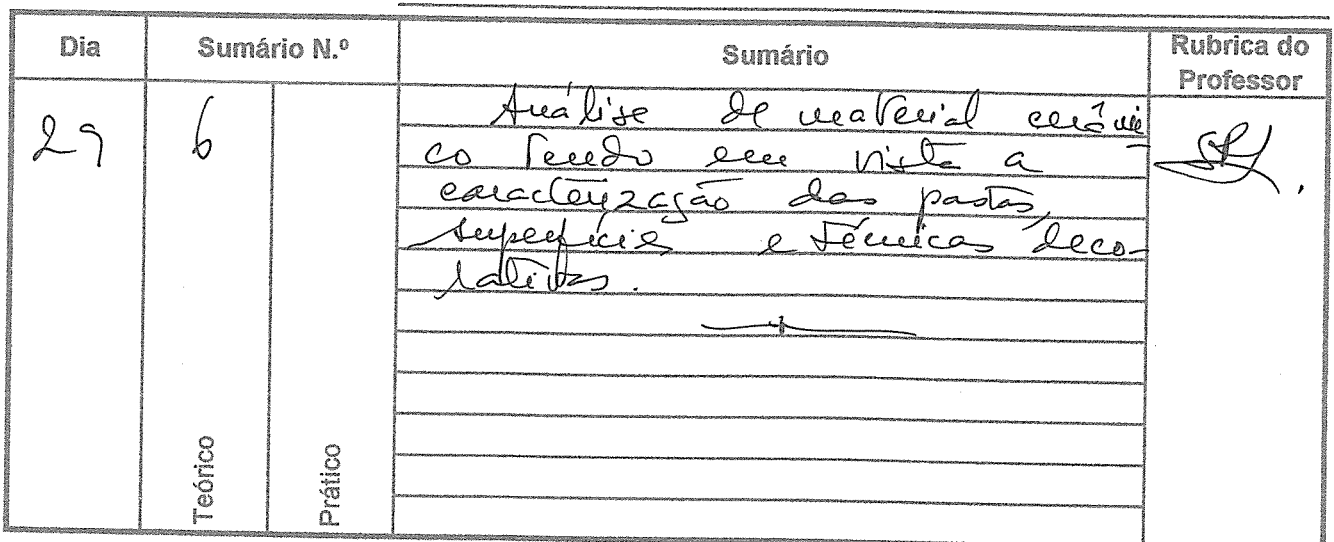 Dia
Sumário N.º
Sumário
Rubrica do
Professor
29
6
Teórico
Prático
Análise de material cerâmi
co tendo em vista a
caracterização das pastas,
superfícies e técnicas deco-
rativas.